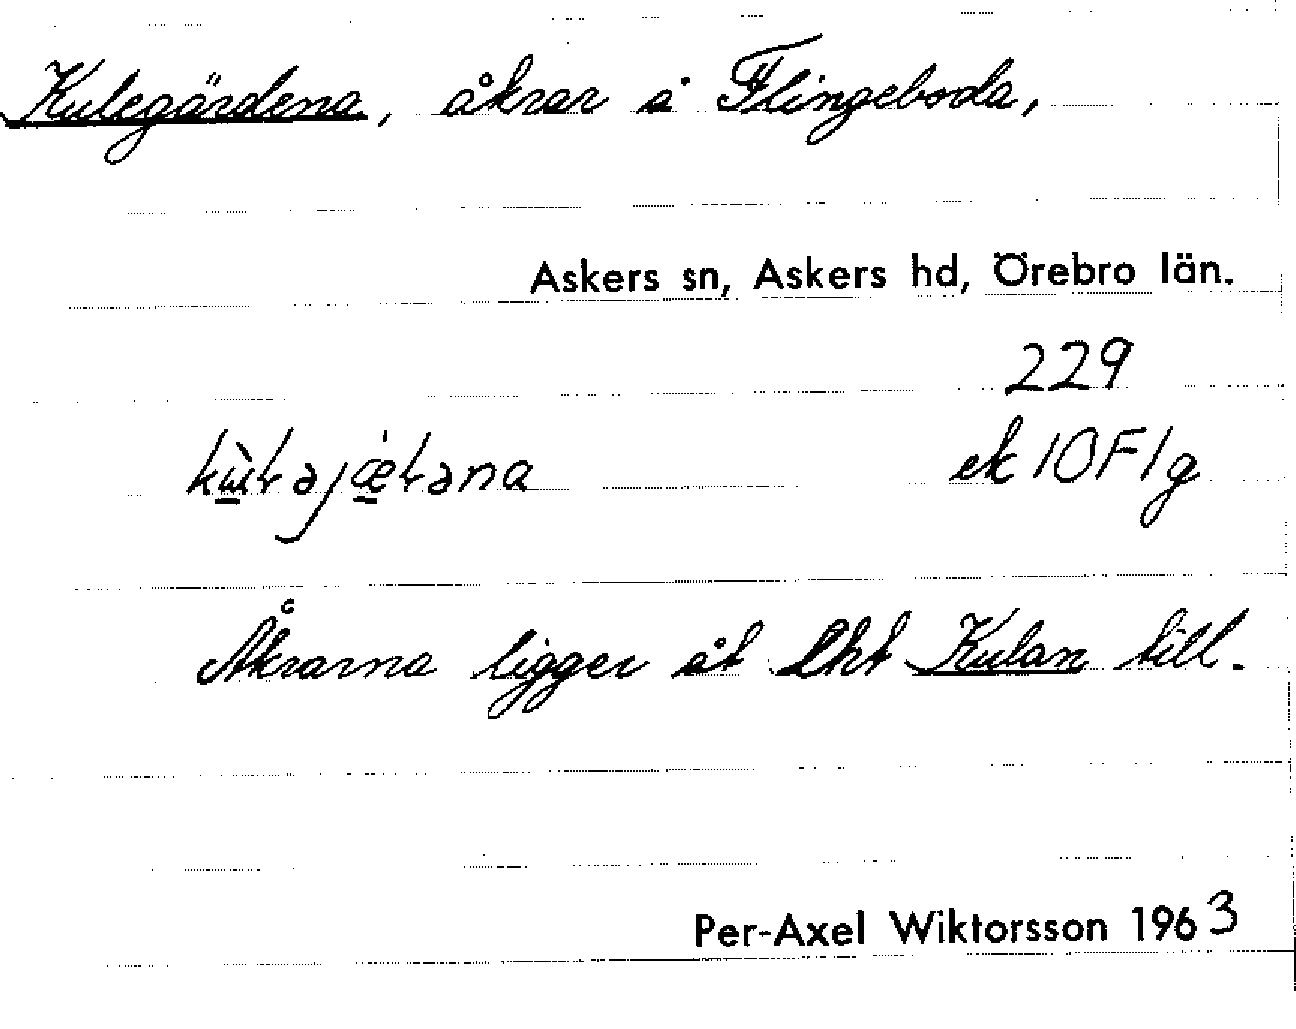 Kulegärdena, åkrar å Flingeboda,
Askers sn, Askers hd, Örebro län.
229
ek 10F1g
Åkrarna ligger åt Lht Kulan till.
Per-Axel Wiktorsson 1963